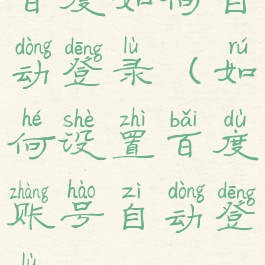 百度如何自
dòng dēng lù rú
动登录(如
hé shè zhì bǎi dù
何设置百度
zhàng hào zì dòng dēng
账号自动登
lù